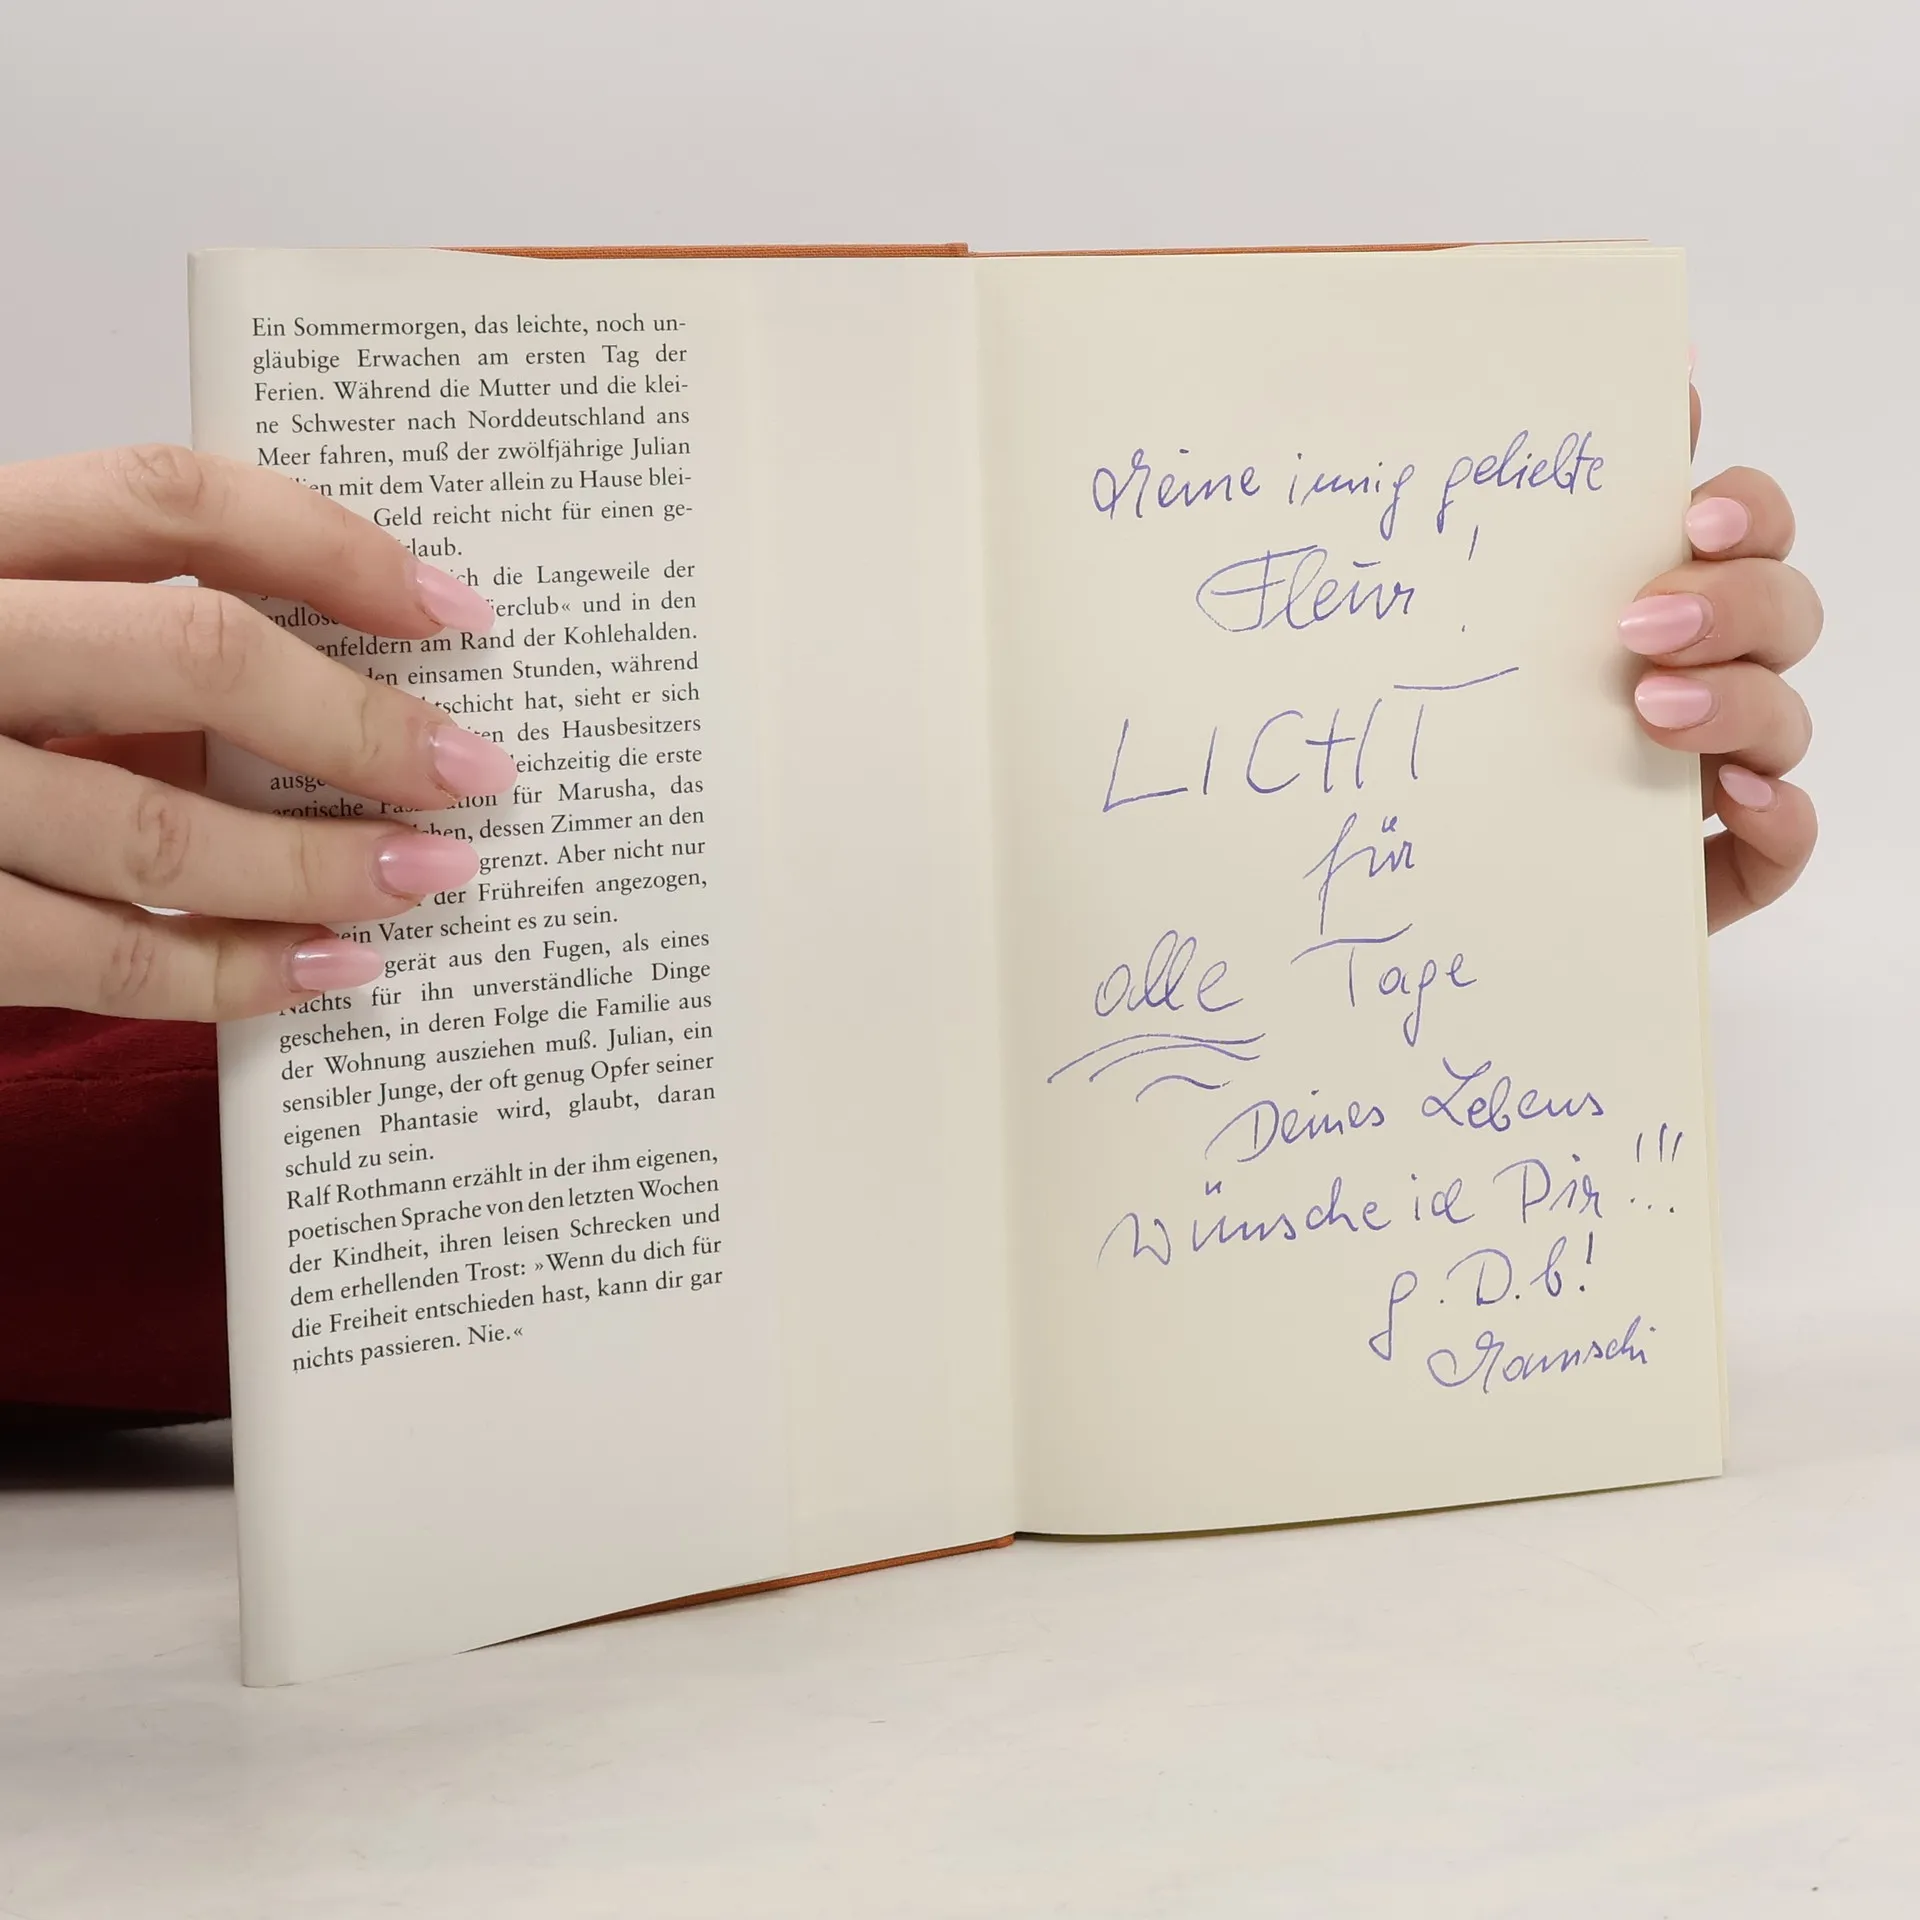 Ein Sommermorgen, das leichte, noch un-
gläubige Erwachen am ersten Tag der
Ferien. Während die Mutter und die klei-
ne Schwester nach Norddeutschland ans
Meer fahren, muß der zwölfjährige Julian
mit dem Vater allein zu Hause blei-
Geld reicht nicht für einen ge-
die Langeweile der
und in den
am Rand der Kohlehalden.
einsamen Stunden, während
hat, sieht er sich
des Hausbesitzers
die erste
für Marusha, das
dessen Zimmer an den
grenzt. Aber nicht nur
der Frühreifen angezogen,
Vater scheint es zu sein.
gerät aus den Fugen, als eines
Nachts für ihn unverständliche Dinge
geschehen, in deren Folge die Familie aus
der Wohnung ausziehen muß. Julian, ein
sensibler Junge, der oft genug Opfer seiner
eigenen Phantasie wird, glaubt, daran
schuld zu sein.
Ralf Rothmann erzählt in der ihm eigenen,
poetischen Sprache von den letzten Wochen
der Kindheit, ihren leisen Schrecken und
dem erhellenden Trost: »Wenn du dich für
die Freiheit entschieden hast, kann dir gar
nichts passieren. Nie.«
Meine innig geliebte
Fleur!
LICHT
für
alle Tage
Deines Lebens
wünsche ich Dir!!!
g. D. b!